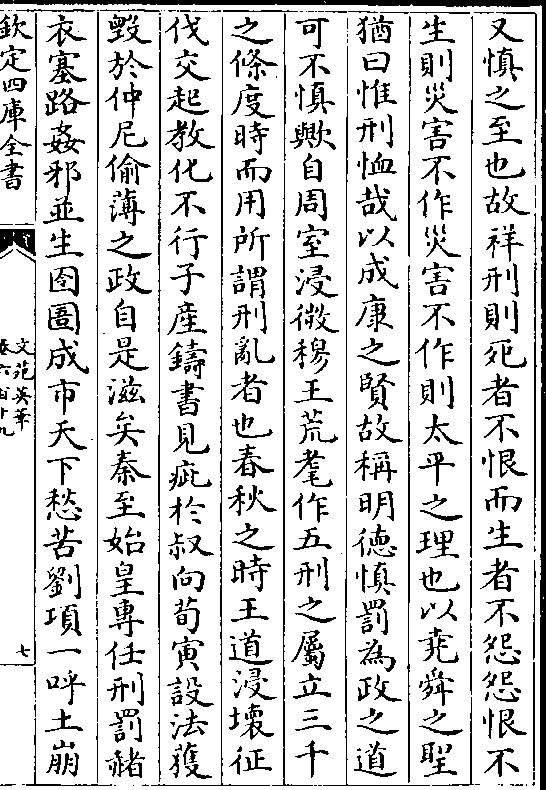 又慎之至也故祥刑則死者不恨而生者不怨怨恨不
生則災害不作災害不作則太平之理也以堯舜之聖
猶曰惟刑恤哉以成康之賢故稱明德慎罰為政之道
可不慎歟自周室浸微穆王荒耄作五刑之屬立三千
之條度時而用所謂刑亂者也春秋之時王道浸壊征
伐交起教化不行子產鑄書見疵於叔向荀寅設法獲
毀於仲尼偷薄之政自是滋矣秦至始皇專任刑罰赭
衣塞路姦邪並生囹圄成市天下愁苦劉項一呼土崩
欽定四庫全書
文苑英華
卷六百十九
七